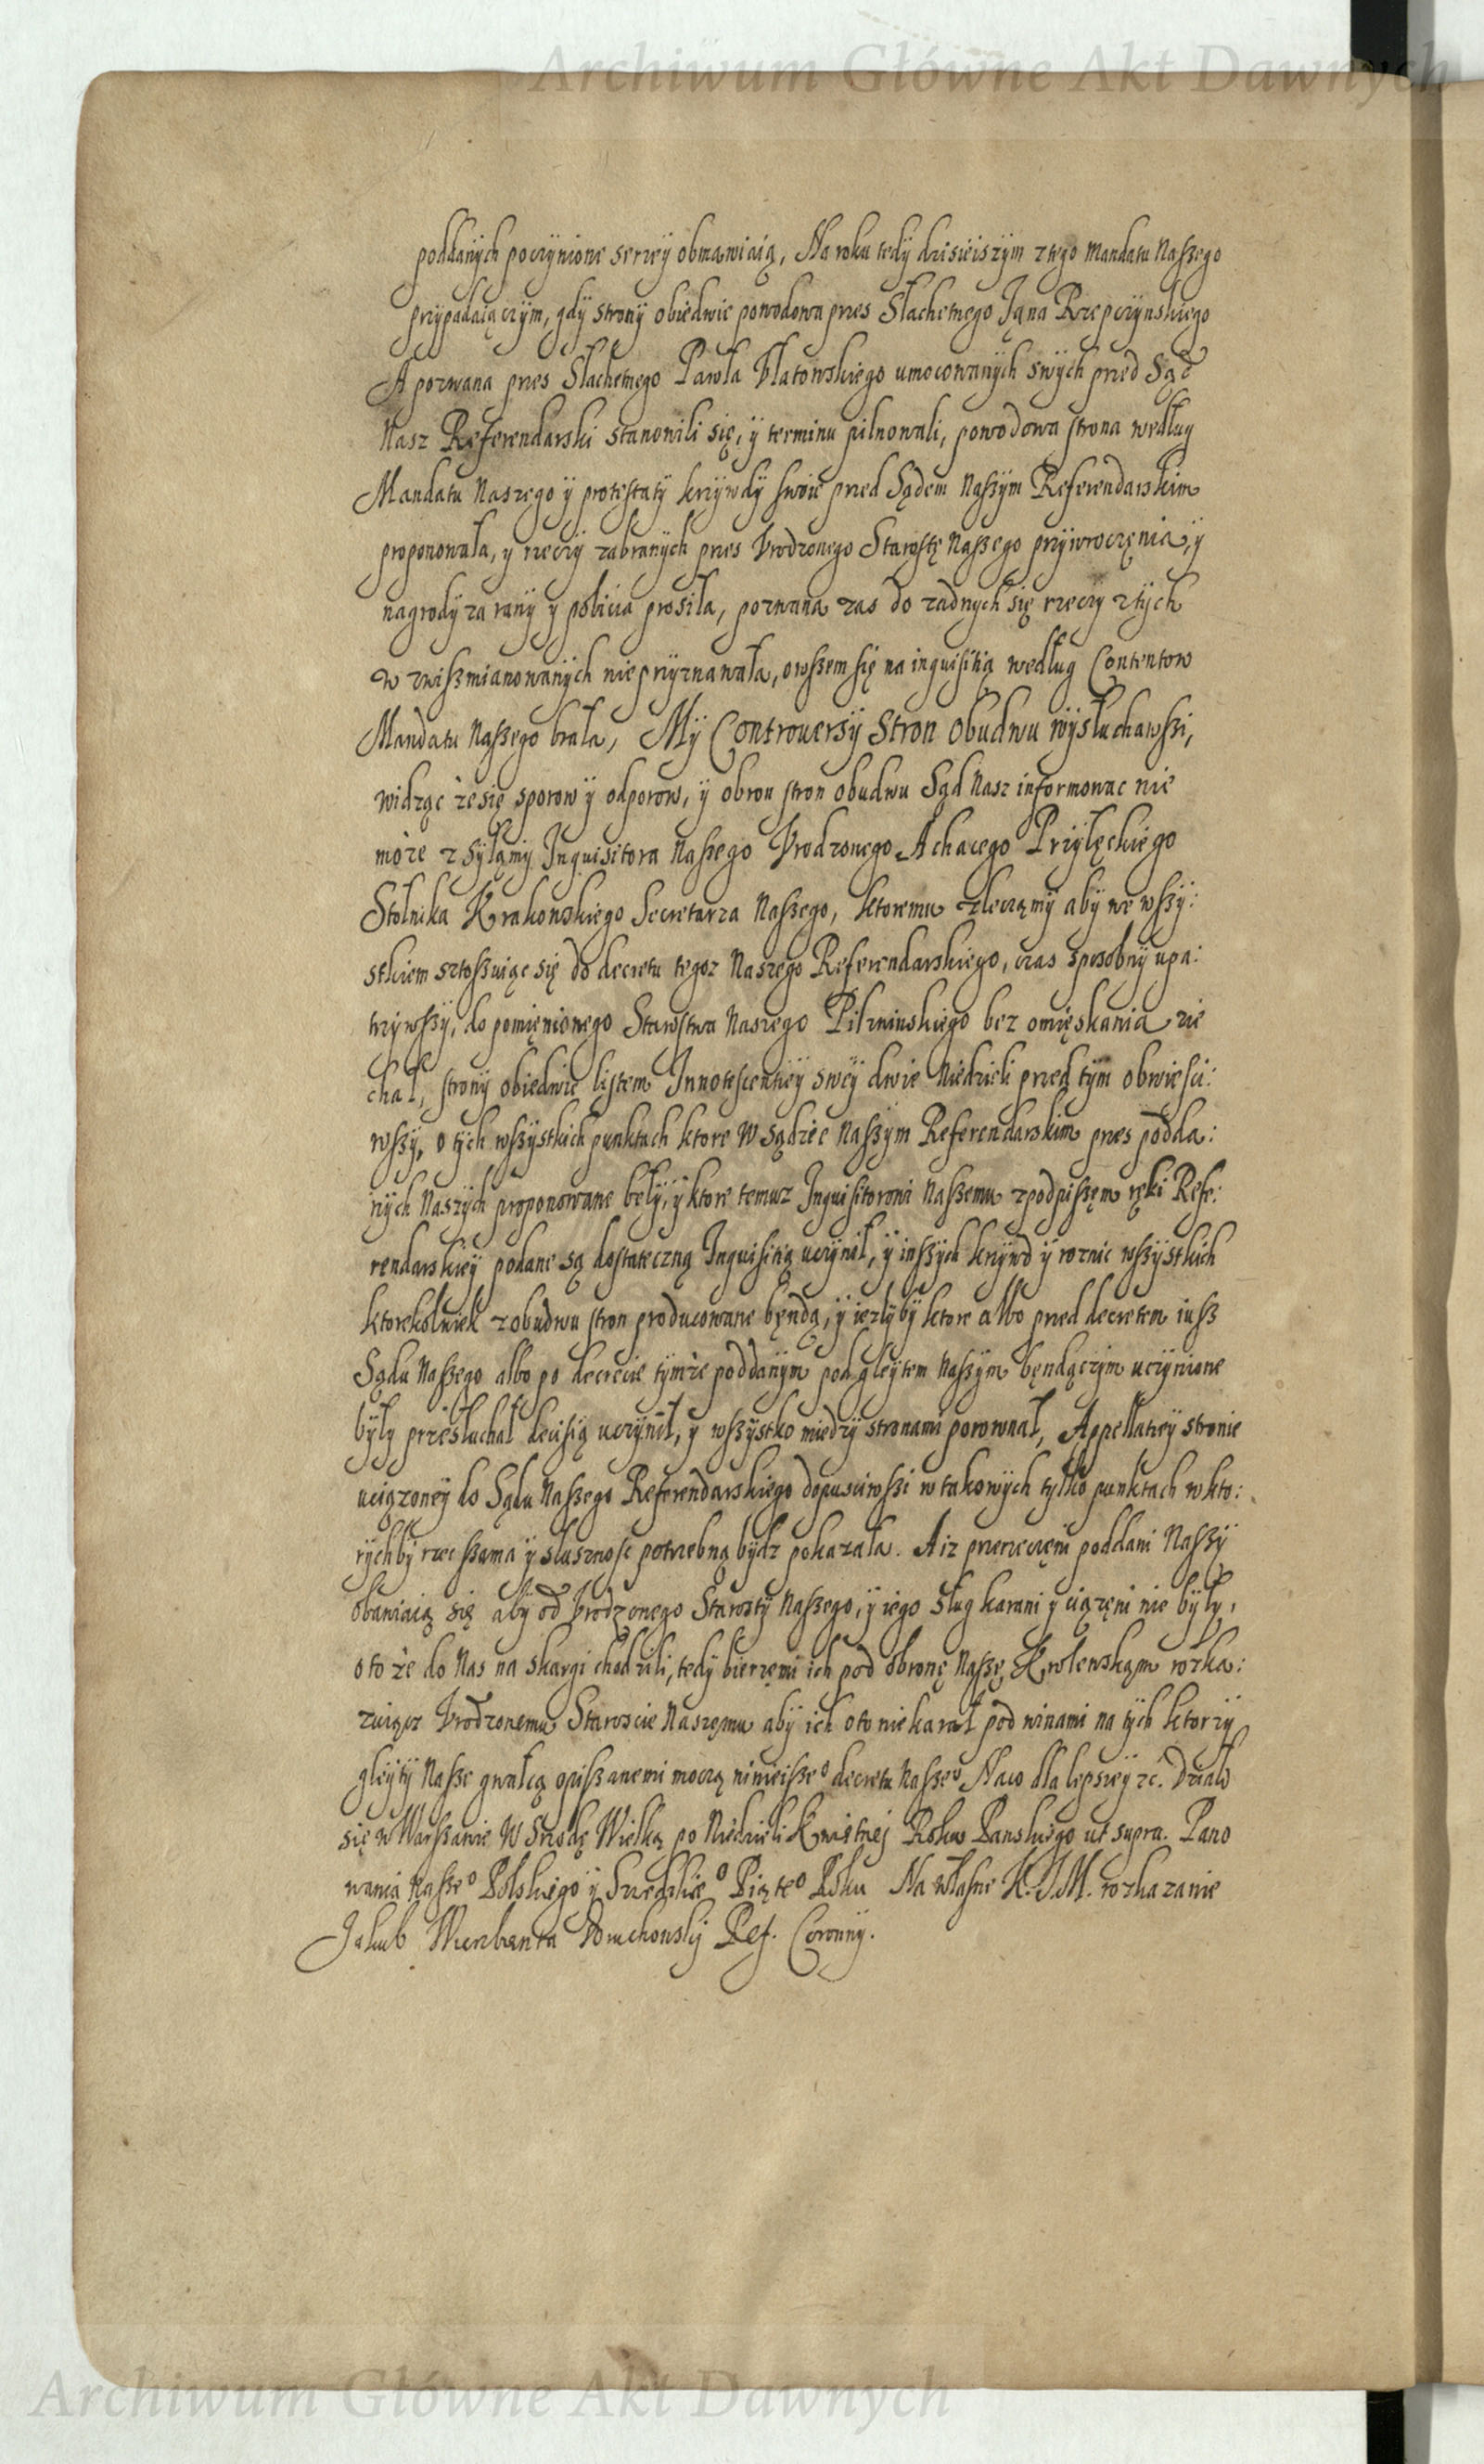 Archiwum Główne Akt Dawnych
poddanych poczynione serzey obmawiaią, Na roku tedy dzisieiszym z tego Mandatu Naszego
przypadaiączym, gdy strony obiedwie powodowa przes Slachetnego Jąna Rzepczynskiego
A pozwana przes Slachetnego Pawła Ulatowskiego umocowanych swych przed Sąd
Nasz Referendarski stanowili się, y terminu pilnowali, powodowa strona według
Mandatu Naszego y protestaty krzywdy swoie przed Sądem Naszym Referendarskim
proponowała, y rzeczy zabranych przes Urodzonego Starostę Naszego przywroczęnia, y
nagrody za rany y pobicia prosiła, pozwana zas do zadnych się rzeczy z tych
w zwisz mianowanych nieprzyznawała, owszem się na inquisitią według Contentow
Mandatu Naszego brała, My Controuersy Stron Obudwu wysłuchawszi,
widząc że się sporow y odporow, y obron stron obudwu Sąd Nasz informowac nie
może zsyłąmy Inquisitora Naszego Urodzonego Achacego Przyłęckiego
Stolnika Krakowskiego Secretarza Naszego, ktoremu zlecząmy aby we wszy:
stkiem sztoszuiąc się do decretu tegoz Naszego Referendarskiego, czas sposobny upa:
trzywszy, do pomięnionego Starostwa Naszego Pilzninskiego bez omięskania zie
chał, strony obiedwie listem Innotescentiey swey dwie Niedzieli przed tym obwiesci:
wszy, o tych wszystkich punktach ktore w Sądzie Naszym Referendarskim przes podda:
nych Naszych proponowane beły, y ktore temuz Inquisitorowi Naszemu z podpiszem ręki Refe:
rendarskiey podane są dostateczną Inquisitią uczynił, y inszych krzywd y roznic wszystkich
ktorekolwiek z obudwu stron producowane bęndą, y iezlyby ktore albo przed decretem iusz
Sądu Naszego albo po decrecie tymże poddanym pod gleytem Naszym bęndączym uczynione
były przesłuchał decisią uczynił, y wszystko miedzy stronami porownał, Appellatiey stronie
uciązoney do Sądu Naszego Referendarskiego dopusciwszi w takowych tylko punktach w kto:
rychby rzecz szama y slusznosc potrzebną bydz pokazała. A iz przerzeczęni poddani Naszy
obawiaią się aby od Urodzonego Starosty Naszego, y iego sług karani y ciązęni nie były,
oto że do Nas na skargi chodzili, tedy bierzemi ich pod obronę Naszę Krolewskąm rozka:
zuiącz Urodzonemu Staroscie Naszęmu aby ich oto nie karał pod winami na tych ktorzy
gleyty Nasze gwałcą opiszanemi moczą ninieisze⁰ decretu Nasze⁰ Naco dla lepszey zc. Działo
się w Warszawie W Srzodę Wielką po Niedzieli Kwietnej Roku Panskiego ut supra. Pano
wania Nasze⁰ Polskiego y Szwedzkie⁰ Piąte⁰ Roku Na własne K. J. M. rozkazanie
Jakub Wierzbanta Doruchowskij Ref. Coronny.
Archiwum Główne Akt Dawnych